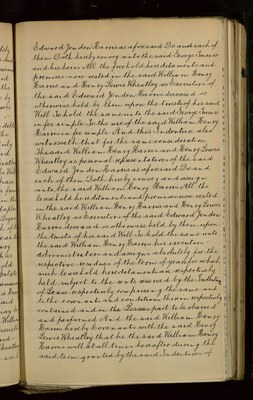 Edward Jondon Harris as aforesaid Do and each of
them Doth hereby convey unto the said George Simner
and his heirs All the freehold hereditaments and
premises now vested in the said William Henry
Harris and Henry Lewis Wheatley as Executors of
the said Edward Jondon Harris deceased or
otherwise held by them upon the trusts of his said
Will To hold the same unto the said George Simner
in fee simple To the use of the said William Henry
Harris in fee simple And this Indenture also
witnesseth that for the same consideration
The said William Henry Harris and Henry Lewis
Wheatley as personal representatives of the said
Edward Jondon Harris as aforesaid Do and
each of them Doth hereby convey and assign
unto the said William Henry Harris All the
leasehold hereditaments and premises now vested
in the said William Henry Harris and Henry Lewis
Wheatley as Executors of the said Edward Jondon
Harris deceased or otherwise held by them upon
the trusts of his said Will To hold the same unto
the said William Henry Harris his executors
administrators and assigns absolutely for the
respective residues of the terms of years for which
such leasehold hereditaments are respectively
held subject to the rents reserved by the Indentures
of Lease respectively comprising the same and
to the covenants and conditions therein respectively
contained and on the Lessees part to be observed
and performed And the said William Henry
Harris hereby Covenants with the said Henry
Lewis Wheatley that he the said William Henry
Harris will at all times hereafter during the
said term granted by the said Indenture of